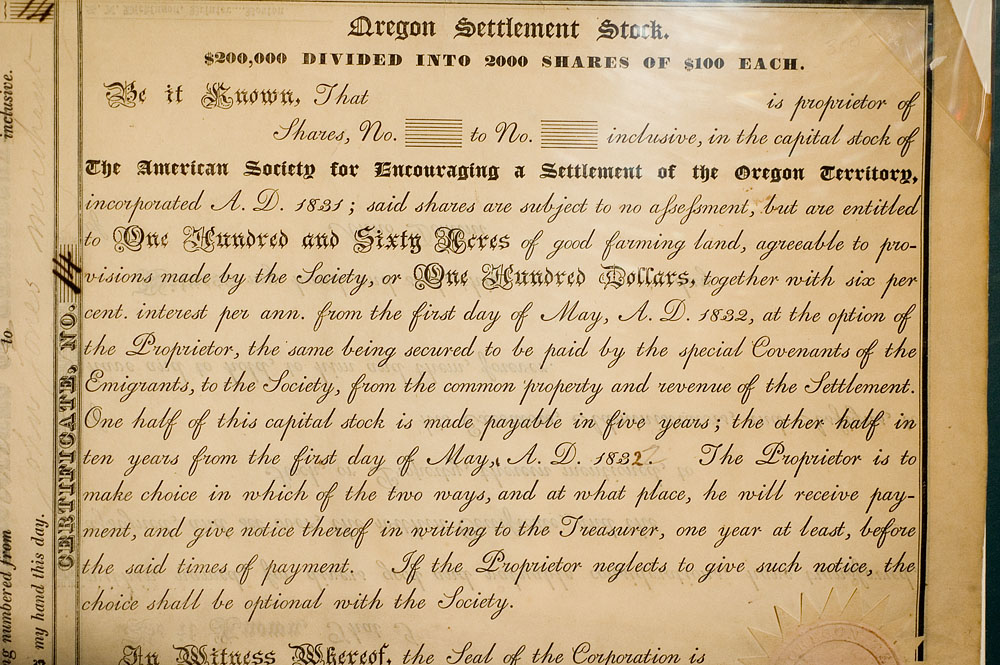 Oregon Settlement Stock.
$200,000 DIVIDED INTO 2000 SHARES OF $100 EACH.
Be it Known, That is proprietor of
Shares, No. to No. inclusive, in the capital stock of
The American Society for Encouraging a Settlement of the Oregon Territory,
incorporated A. D. 1831; said shares are subject to no aſseſsment, but are entitled
to One Hundred and Sixty Acres of good farming land, agreeable to pro-
visions made by the Society, or One Hundred Dollars, together with six per
cent. interest per ann. from the first day of May, A. D. 1832, at the option of
the Proprietor, the same being secured to be paid by the special Covenants of the
Emigrants, to the Society, from the common property and revenue of the Settlement.
One half of this capital stock is made payable in five years; the other half in
ten years from the first day of May, A. D. 1832. The Proprietor is to
make choice in which of the two ways, and at what place, he will receive pay-
ment, and give notice thereof in writing to the Treasurer, one year at least, before
the said times of payment. If the Proprietor neglects to give such notice, the
choice shall be optional with the Society.
In Witness Whereof, the Seal of the Corporation is
CERTIFICATE, NO. 14
14
inclusive.
to
ng numbered from
my hand this day.